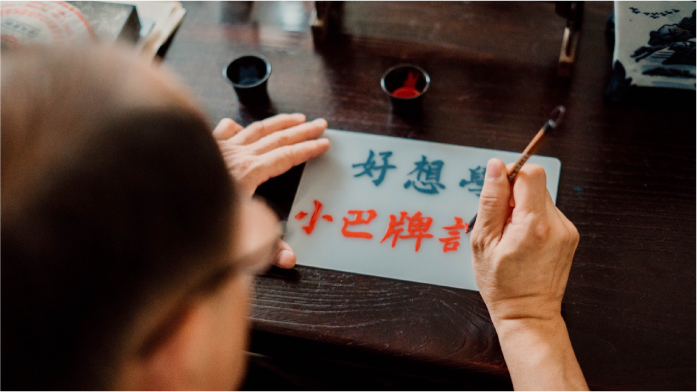 好想學
小巴牌